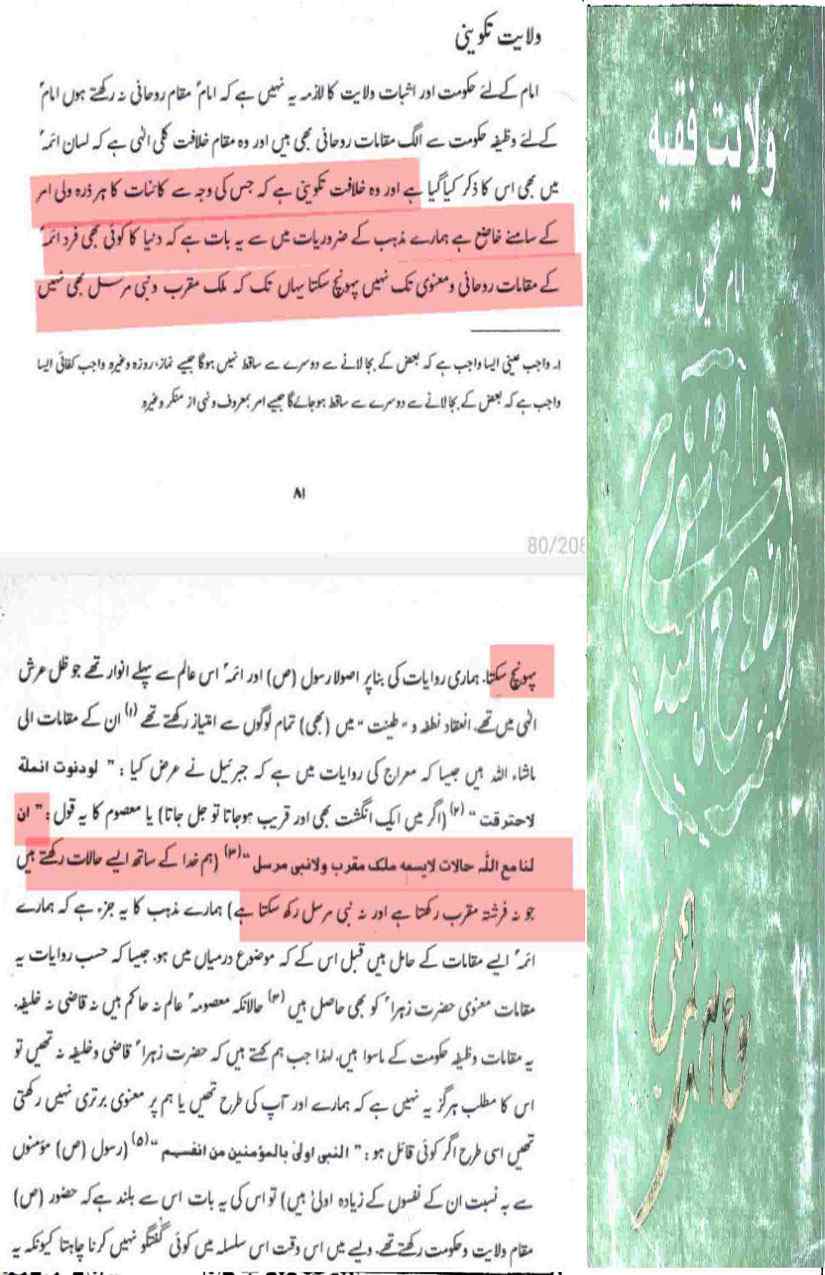 ولایت تکوینی
امام کے لئے حکومت اور اثبات ولایت کا لازمہ یہ نہیں ہے کہ امامؑ مقام روحانی نہ رکھتے ہوں امامؑ
کے لئے وظیفہ حکومت سے الگ مقامات روحانی بھی ہیں اور وہ مقام خلافت کلی الٰہی ہے کہ لسان ائمہؑ
میں بھی اس کا ذکر کیا گیا ہے اور وہ خلافت تکوینی ہے کہ جس کی وجہ سے کائنات کا ہر ذرہ ولی امر
کے سامنے خاضع ہے ہمارے مذہب کے ضروریات میں سے یہ بات ہے کہ دنیا کا کوئی بھی فرد ائمہؑ
کے مقامات روحانی و معنوی تک نہیں پہونچ سکتا یہاں تک کہ ملک مقرب و نبی مرسل بھی نہیں
۱۔ واجب عینی ایسا واجب ہے کہ بعض کے بجا لانے سے دوسرے سے ساقط نہیں ہوگا جیسے نماز، روزہ وغیرہ واجب کفائی ایسا
واجب ہے کہ بعض کے بجا لانے سے دوسرے سے ساقط ہو جائے گا جیسے امر بمعروف و نہی از منکر وغیرہ
۸۱
80/208
پہونچ سکتا۔ ہماری روایات کی بناپر اصولا رسول (ص) اور ائمہؑ اس عالم سے پہلے انوار تھے جو ظل عرش
الٰہی میں تھے۔ انعقاد نطفہ و "طینت" میں (بھی) تمام لوگوں سے امتیاز رکھتے تھے (۱) ان کے مقامات الی
ماشاء اللہ ہیں جیسا کہ معراج کی روایات میں ہے کہ جبرئیل نے عرض کیا : " لودنوت انملة
لاحترقت " (۲) (اگر میں ایک انگشت بھی اور قریب ہو جاتا تو جل جاتا) یا معصوم کا یہ قول : " ان
لنا مع اللّٰہ حالات لایسعه ملک مقرب ولانبی مرسل " (۳) (ہم خدا کے ساتھ ایسے حالات رکھتے ہیں
جو نہ فرشتہ مقرب رکھتا ہے اور نہ نبی مرسل رکھ سکتا ہے) ہمارے مذہب کا یہ جزء ہے کہ ہمارے
ائمہؑ ایسے مقامات کے حامل ہیں قبل اس کے کہ موضوع درمیاں میں ہو۔ جیسا کہ حسب روایات یہ
مقامات معنوی حضرت زہراؑ کو بھی حاصل ہیں (۴) حالانکہ معصومہؑ عالم نہ حاکم ہیں نہ قاضی نہ خلیفہ۔
یہ مقامات وظیفہ حکومت کے ماسوا ہیں۔ لہذا جب ہم کہتے ہیں کہ حضرت زہراؑ قاضی و خلیفہ نہ تھیں تو
اس کا مطلب ہرگز یہ نہیں ہے کہ ہمارے اور آپ کی طرح تھیں یا ہم پر معنوی برتری نہیں رکھتی
تھیں اسی طرح اگر کوئی قائل ہو : " النبی اولیٰ بالمؤمنین من انفسهم " (۵) (رسول (ص) مؤمنوں
سے بہ نسبت ان کے نفسوں کے زیادہ اولیٰ ہیں) تو اس کی یہ بات اس سے بلند ہے کہ حضور (ص)
مقام ولایت و حکومت رکھتے تھے۔ ویسے میں اس وقت اس سلسلہ میں کوئی گفتگو نہیں کرنا چاہتا کیونکہ یہ
ولایت فقیه
امام خمینی